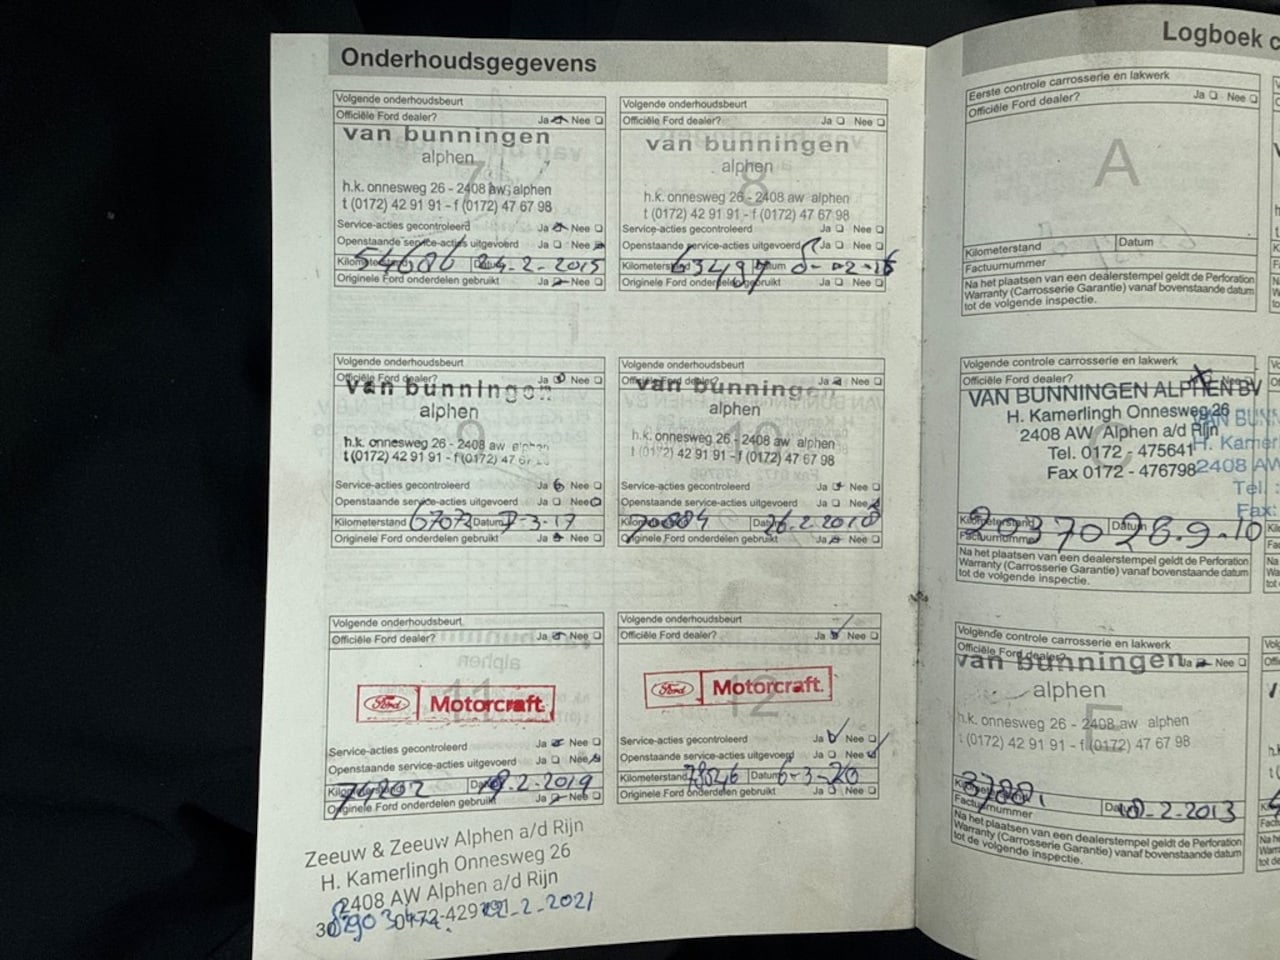 Onderhoudsgegevens
Volgende onderhoudsbeurt
Officiële Ford dealer? Ja Nee
van bunningen
alphen
7
h.k. onnesweg 26 - 2408 aw alphen
t (0172) 42 91 91 - f (0172) 47 67 98
Service-acties gecontroleerd Ja Nee
Openstaande service-acties uitgevoerd Ja Nee
Kilometerstand 54686 Datum 24-2-2015
Originele Ford onderdelen gebruikt Ja Nee
Volgende onderhoudsbeurt
Officiële Ford dealer? Ja Nee
van bunningen
alphen
8
h.k. onnesweg 26 - 2408 aw alphen
t (0172) 42 91 91 - f (0172) 47 67 98
Service-acties gecontroleerd Ja Nee
Openstaande service-acties uitgevoerd Ja Nee
Kilometerstand 63497 Datum 8-02-16
Originele Ford onderdelen gebruikt Ja Nee
Volgende onderhoudsbeurt
Officiële Ford dealer? Ja Nee
van bunningen
alphen
9
h.k. onnesweg 26 - 2408 aw alphen
t (0172) 42 91 91 - f (0172) 47 67
Service-acties gecontroleerd Ja Nee
Openstaande service-acties uitgevoerd Ja Nee
Kilometerstand 67073 Datum 7-3-17
Originele Ford onderdelen gebruikt Ja Nee
Volgende onderhoudsbeurt
Officiële Ford dealer? Ja Nee
van bunningen
alphen
10
h.k. onnesweg 26 - 2408 aw alphen
t (0172) 42 91 91 - f (0172) 47 67 98
Service-acties gecontroleerd Ja Nee
Openstaande service-acties uitgevoerd Ja Nee
Kilometerstand 70884 Datum 26.2.2018
Originele Ford onderdelen gebruikt Ja Nee
Volgende onderhoudsbeurt
Officiële Ford dealer? Ja Nee
11
Ford Motorcraft.
Service-acties gecontroleerd Ja Nee
Openstaande service-acties uitgevoerd Ja Nee
Kilometerstand Datum 2-2019
Originele Ford onderdelen gebruikt Ja Nee
Volgende onderhoudsbeurt
Officiële Ford dealer? Ja Nee
Ford Motorcraft.
12
Service-acties gecontroleerd Ja Nee
Openstaande service-acties uitgevoerd Ja Nee
Kilometerstand 78546 Datum 6-3-20
Originele Ford onderdelen gebruikt Ja Nee
Zeeuw & Zeeuw Alphen a/d Rijn
H. Kamerlingh Onnesweg 26
2408 AW Alphen a/d Rijn
2-2-2021
Logboek c
Eerste controle carrosserie en lakwerk
Officiële Ford dealer? Ja Nee
A
Kilometerstand Datum
Factuurnummer
Na het plaatsen van een dealerstempel geldt de Perforation
Warranty (Carrosserie Garantie) vanaf bovenstaande datum
tot de volgende inspectie.
Volgende controle carrosserie en lakwerk
Officiële Ford dealer? Nee
VAN BUNNINGEN ALPHEN BV
H. Kamerlingh Onnesweg 26
2408 AW Alphen a/d Rijn
Tel. 0172 - 475641
Fax 0172 - 476798
Kilometerstand 20370 Datum 28.9.10
Factuurnummer
Na het plaatsen van een dealerstempel geldt de Perforation
Warranty (Carrosserie Garantie) vanaf bovenstaande datum
tot de volgende inspectie.
2408 AW
Tel.
Fax:
Volgende controle carrosserie en lakwerk
Officiële Ford dealer? Ja Nee
van bunningen
alphen
E
h.k. onnesweg 26 - 2408 aw alphen
t (0172) 42 91 91 - f (0172) 47 67 98
Kilometerstand Datum 2-2013
Factuurnummer
Na het plaatsen van een dealerstempel geldt de Perforation
Warranty (Carrosserie Garantie) vanaf bovenstaande datum
tot de volgende inspectie.